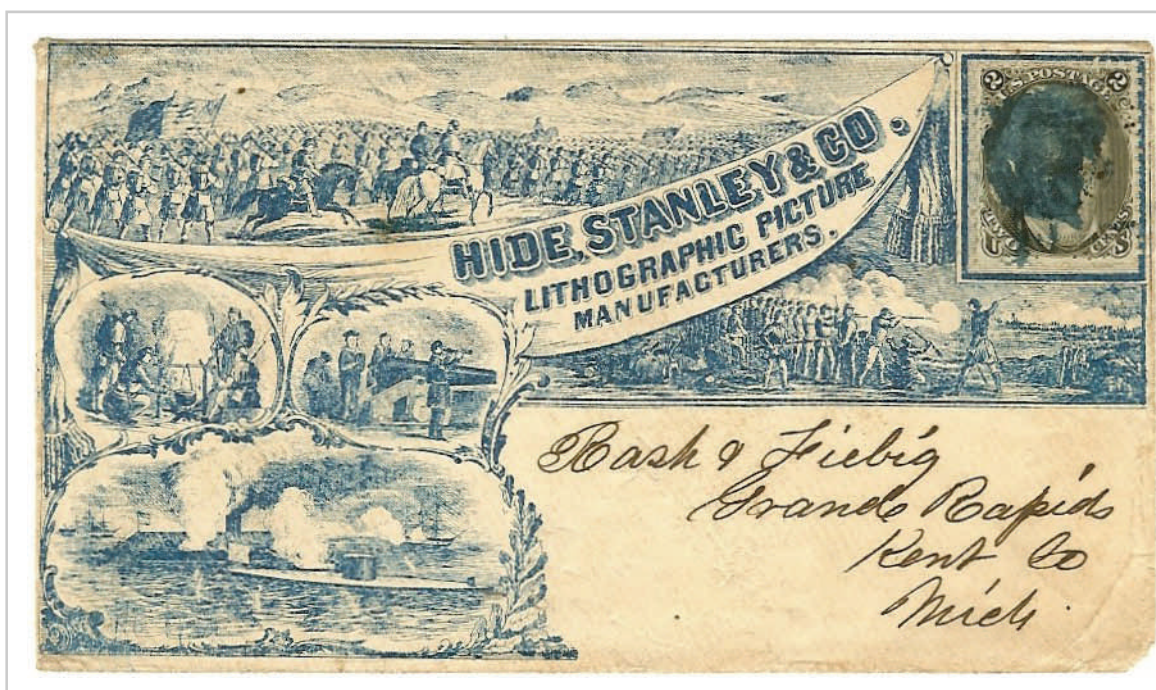 HIDE, STANLEY & CO.
LITHOGRAPHIC PICTURE
MANUFACTURERS.
2 U.S. POSTAGE 2
TWO CENTS
U S
Rash & Fiebig
Grand Rapids
Kent Co
Mich.